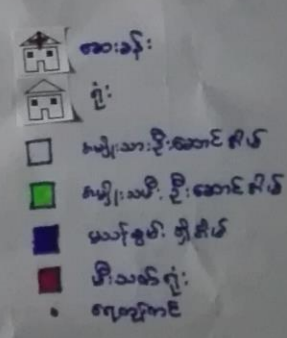 ဆေးခန်း
ရုံး
အမျိုးသားဦးဆောင်အိမ်
အမျိုးသမီးဦးဆောင်အိမ်
မသန်စွမ်းရှိအိမ်
မီးသတ်ရုံး
ရေတွင်း